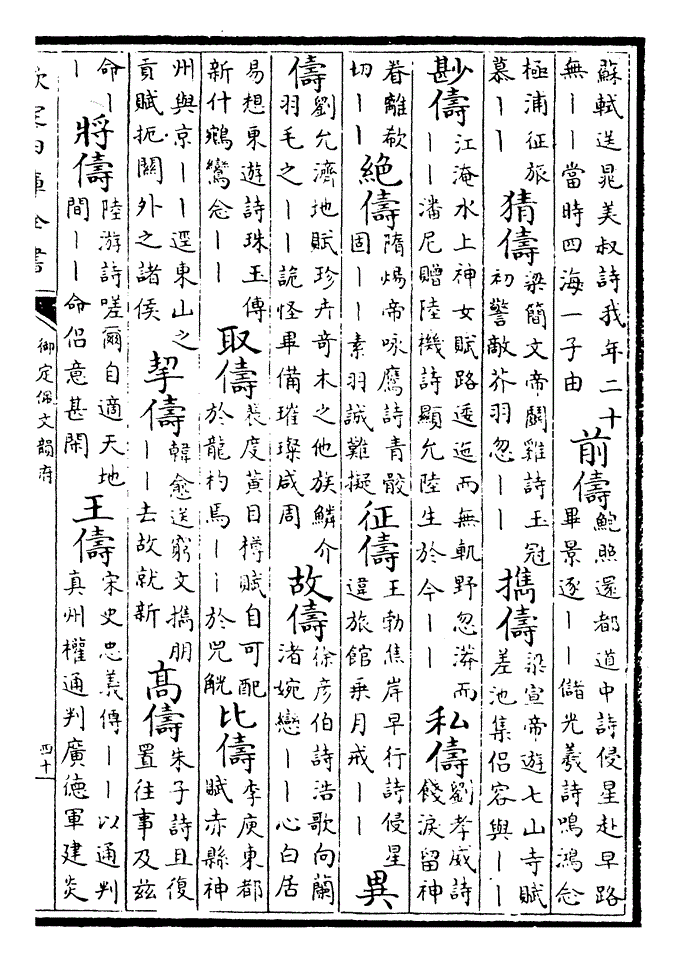 蘇軾送晁美叔詩我年二十
無丨丨當時四海一子由
前儔
鮑照還都道中詩侵星赴早路
畢景逐丨丨儲光羲詩鳴鴻念
極浦征旅
慕丨丨
猜儔
梁簡文帝鬭雞詩玉冠
初警敵芥羽忽丨丨
攜儔
梁宣帝遊七山寺賦
差池集侣容與丨丨
尠儔
江淹水上神女賦路逶迤而無軌野忽漭而
丨丨潘尼贈陸機詩顯允陸生於今丨丨
私儔
劉孝威詩
餞淚留神
眷離欷
切丨丨
絶儔
隋煬帝咏鷹詩青骹
固丨丨素羽誠難擬
征儔
王勃焦岸早行詩侵星
違旅館乗月戒丨丨
異
儔
劉允濟地賦珍卉奇木之他族鱗介
羽毛之丨丨詭怪畢備璀璨咸周
故儔
徐彦伯詩浩歌向蘭
渚婉戀丨丨心白居
易想東遊詩珠玉傳
新什鵷鸞念丨丨
取儔
裴度黄目樽賦自可配
於龍杓焉丨丨於兕觥
比儔
李庾東都
賦赤縣神
州與京丨丨逕東山之
貢賦扼關外之諸侯
挈儔
韓愈送窮文攜朋
丨丨去故就新
高儔
朱子詩且復
置往事及兹
命丨
丨
將儔
陸游詩嗟爾自適天地
間丨丨命侣意甚閑
王儔
宋史忠義傳丨丨以通判
真州權通判廣德軍建炎
欽定四庫全書
御定佩文韻府
四十